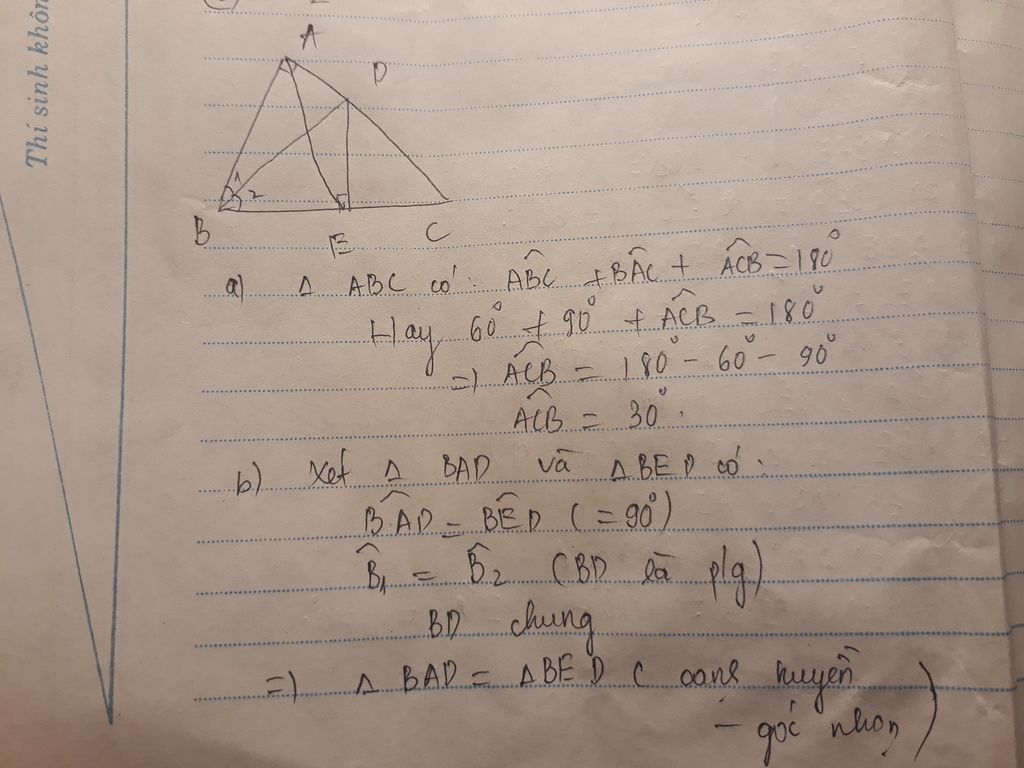 Thí sinh khôn
A
D
1
2
B
E
C
a) Δ ABC có: ABC + BAC + ACB = 180°
Hay 60° + 90° + ACB = 180°
=) ACB = 180° - 60° - 90°
ACB = 30°.
b) Xét Δ BAD và Δ BED có:
BAD = BED (= 90°)
B1 = B2 (BD là p/g)
BD chung
=) Δ BAD = Δ BED ( cạnh huyền
- góc nhọn )